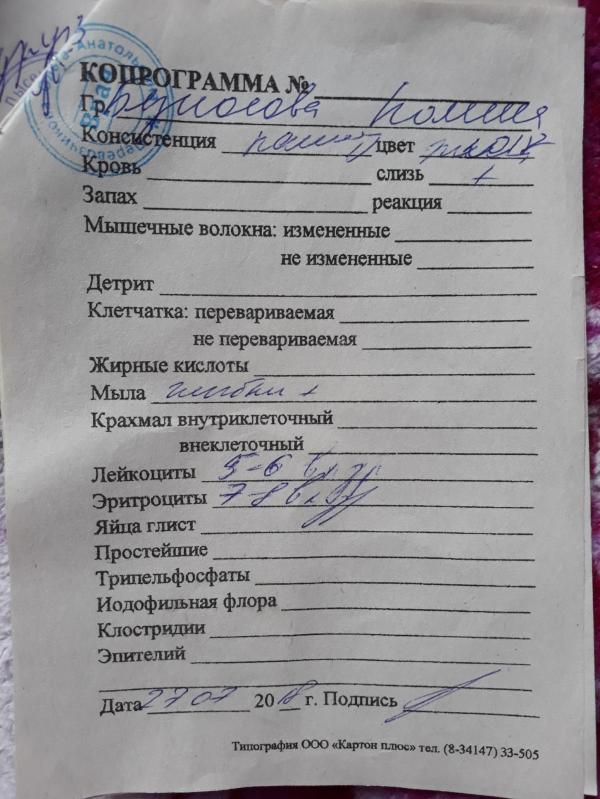 КОПРОГРАММА №
Гр.
Консистенция цвет
Кровь слизь +
Запах реакция
Мышечные волокна: измененные
не измененные
Детрит
Клетчатка: перевариваемая
не перевариваемая
Жирные кислоты
Мыла грибки +
Крахмал внутриклеточный
внеклеточный
Лейкоциты 5-6 в п/зр
Эритроциты 7-8 в п/зр
Яйца глист
Простейшие
Трипельфосфаты
Иодофильная флора
Клостридии
Эпителий
Дата 27 07 2018 г. Подпись
Типография ООО «Картон плюс» тел. (8-34147) 33-505